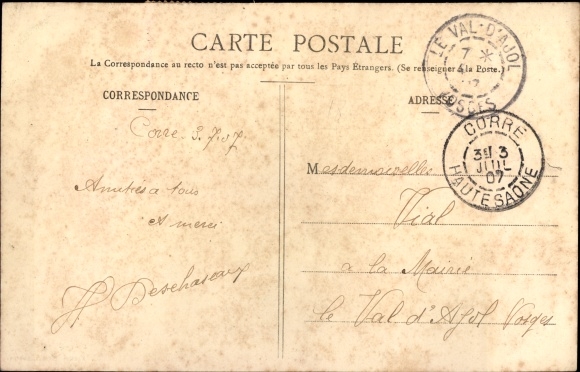 CARTE POSTALE
La Correspondance au recto n'est pas acceptée par tous les Pays Étrangers. (Se renseigner à la Poste.)
CORRESPONDANCE
ADRESSE
LE VAL-D'AJOL
7 *
VOSGES
CORRE
3E 3
JUIL
07
HAUTE SAÔNE
Corre 3.7.07
Amitiés à tous
et merci
Deschaseaux
Mesdemoiselles
Vial
à la Mairie
le Val d'Ajol Vosges